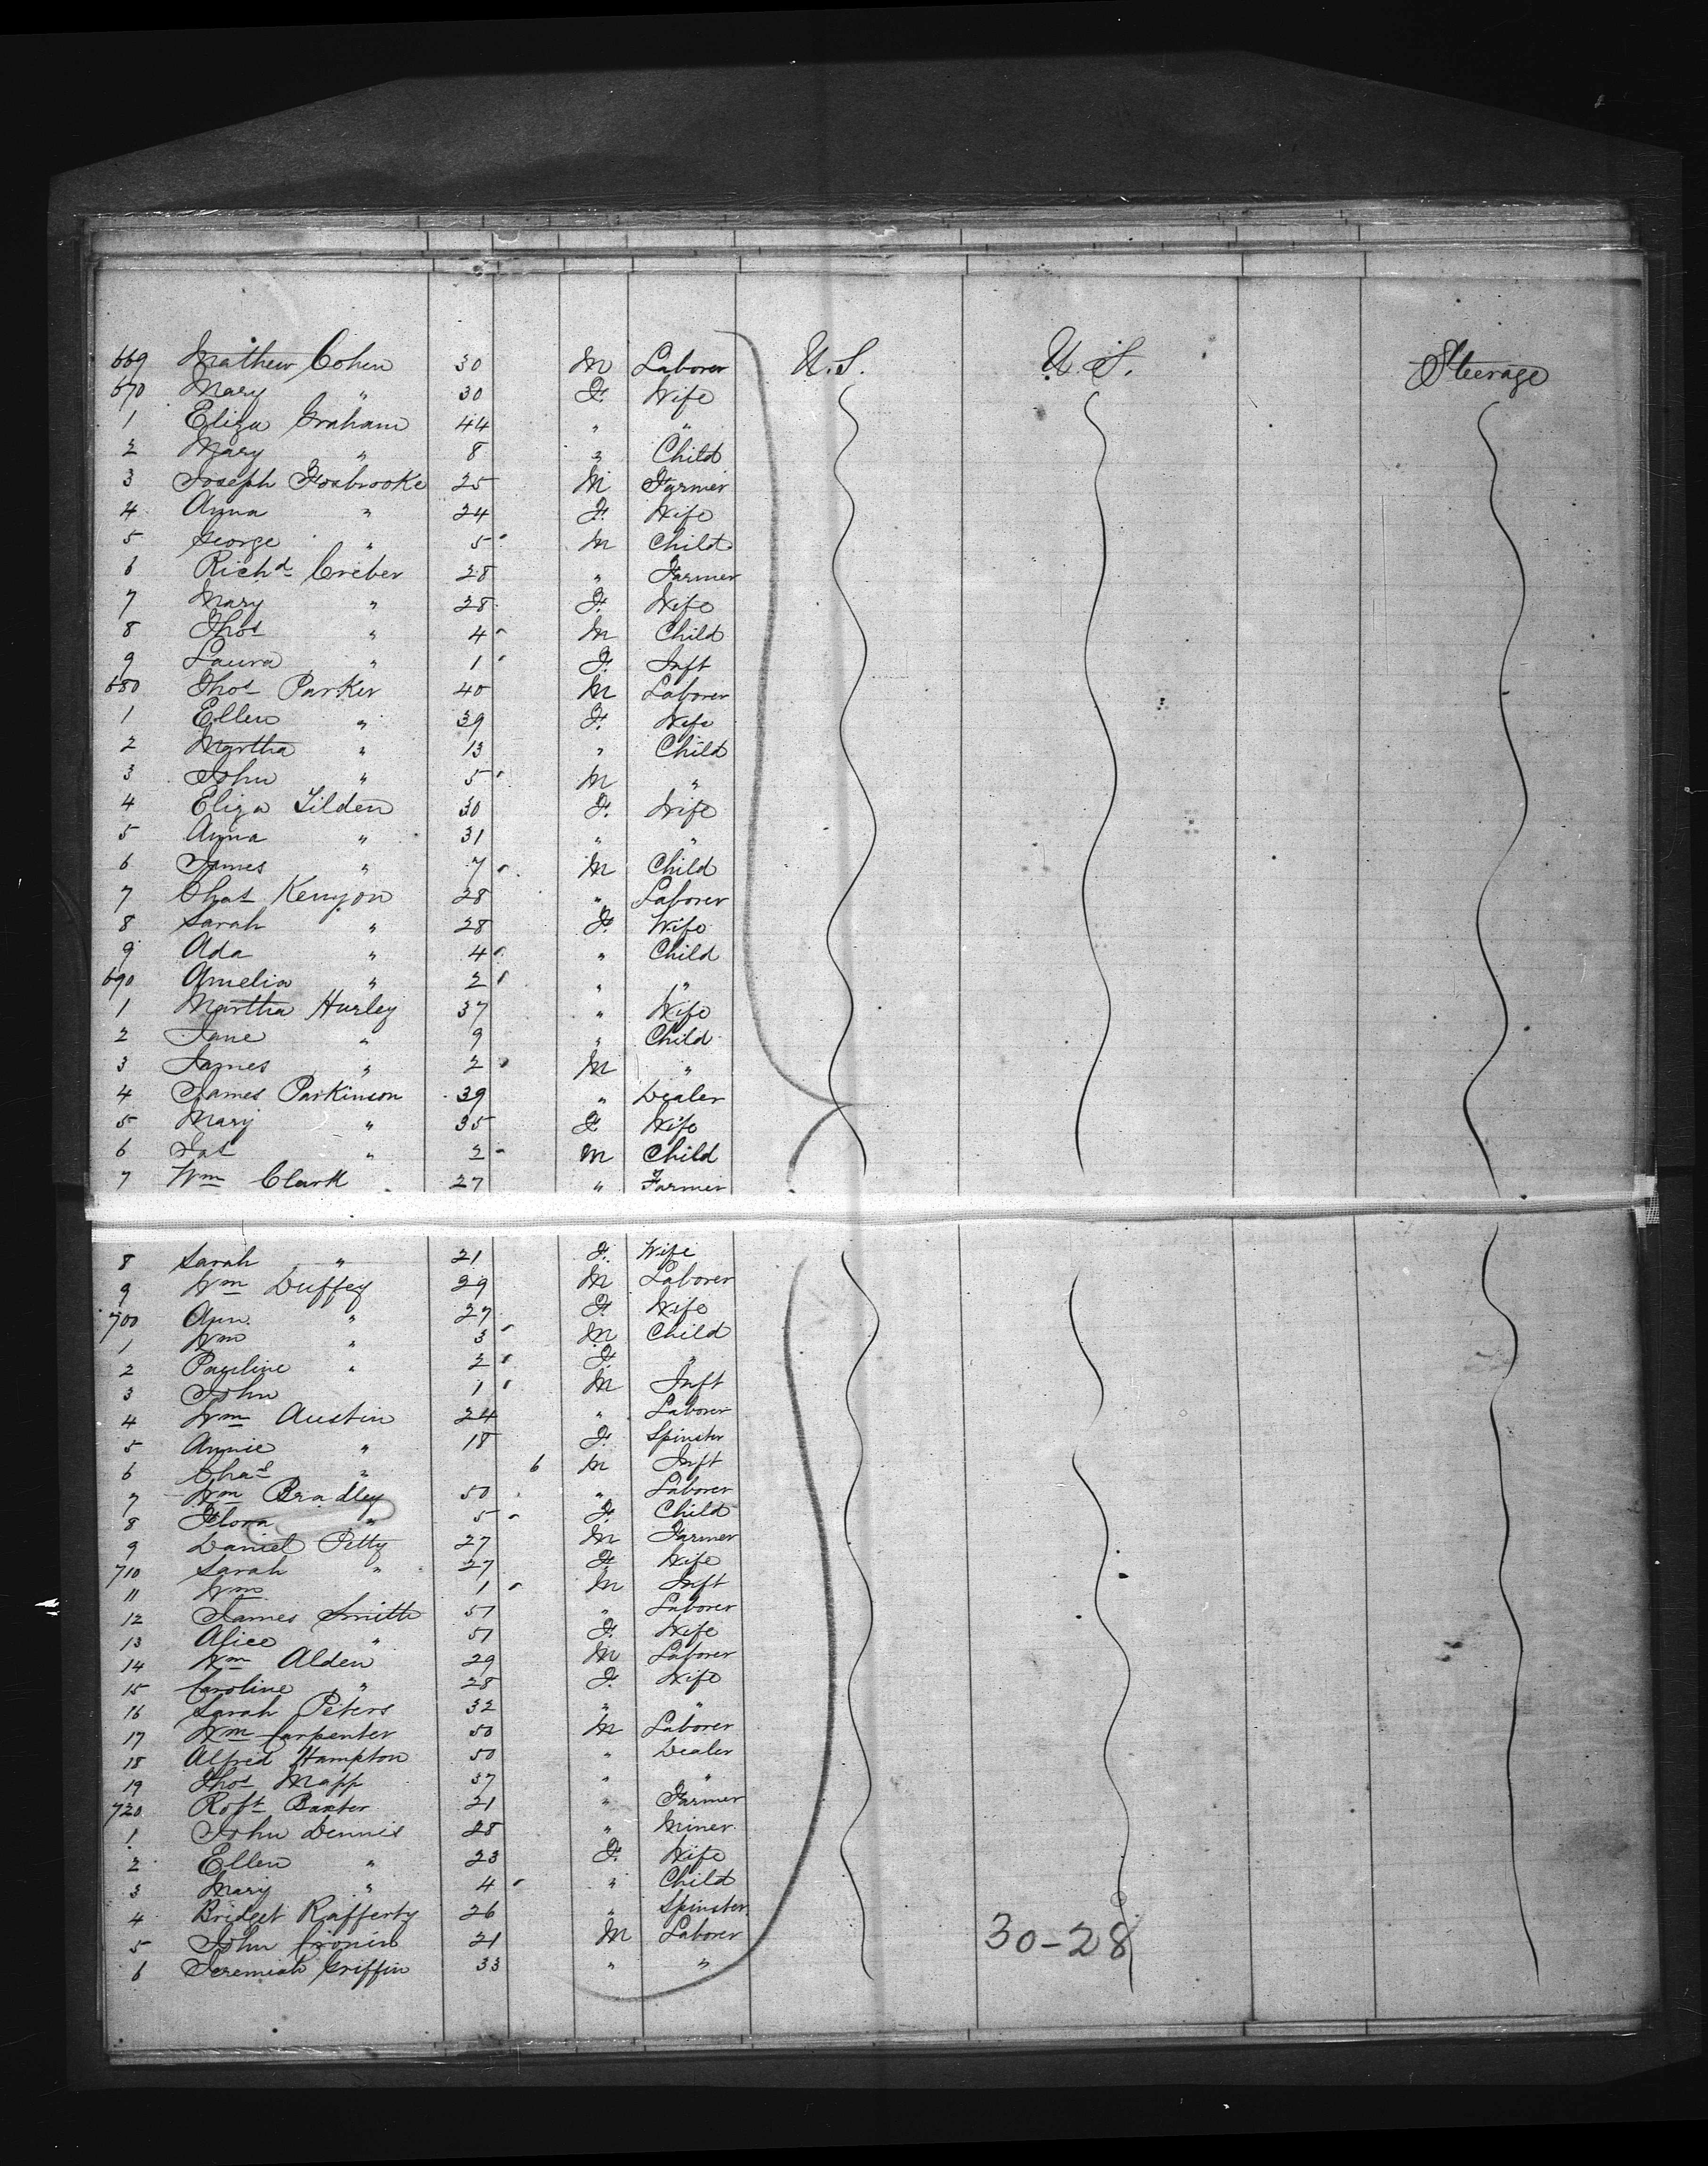 669 Mathew Cohen 30 M Laborer U.S. U.S. Steerage
670 Mary " 30 F. Wife
1 Eliza Graham 44 " "
2 Mary " 8 " Child
3 Joseph Foxbrooke 25 M Farmer
4 Anna " 24 F. Wife
5 George " 5 M Child
6 Richd Creber 28 " Farmer
7 Mary " 28 F. Wife
8 Thos " 4 M Child
9 Laura " 1 F. Inft
680 Thos Parker 40 M Laborer
1 Ellen " 39 F. Wife
2 Martha " 13 " Child
3 John " 5 M "
4 Eliza Tilden 30 F. Wife
5 Anna " 31 " "
6 James " 7 M Child
7 Chas Kenyon 28 " Laborer
8 Sarah " 28 F. Wife
9 Ada " 4 " Child
690 Amelia " 2 " "
1 Martha Hurley 37 " Wife
2 Jane " 9 " Child
3 James " 2 M "
4 James Parkinson 39 " Dealer
5 Mary " 35 F Wife
6 Jas " 2 M Child
7 Wm Clark 27 " Farmer
8 Sarah " 21 F. Wife
9 Wm Duffey 29 M Laborer
700 Ann " 27 F. Wife
1 Wm " 3 M Child
2 Pauline " 2 F. "
3 John 1 M Inft
4 Wm Austin 24 " Laborer
5 Annie " 18 F. Spinster
6 Chas " 6 M Inft
7 Wm Bradley 50 " Laborer
8 Flora " 5 F. Child
9 Daniel Petty 27 M Farmer
710 Sarah " 27 F. Wife
11 Wm 1 M Inft
12 James Smith 51 " Laborer
13 Alice " 51 F. Wife
14 Wm Alden 29 M Laborer
15 Caroline " 28 F. Wife
16 Sarah Peters 32 " "
17 Wm Carpenter 50 M Laborer
18 Alfred Hampton 50 " Dealer
19 Thos Mapp 37 " "
720 Robt Baxter 21 " Farmer
1 John Dennis 28 " Miner
2 Ellen " 23 F. Wife
3 Mary " 4 " Child
4 Bridget Rafferty 26 " Spinster
5 John Cronin 21 M Laborer 30-28
6 Jeremiah Griffin 33 " "